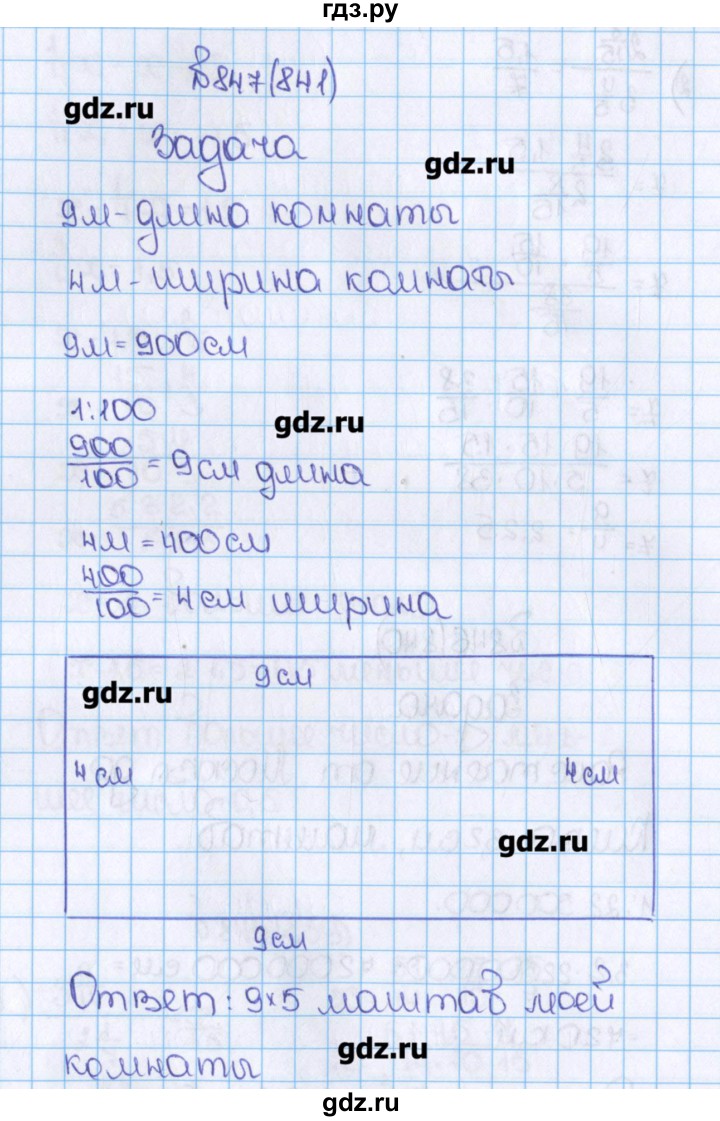 гдз.ру
№847(841)
gdz.ru
Задача
gdz.ru
9м-длина комнаты
4м-ширина комнаты
9м=900см
1:100
gdz.ru
900/100=9см длина
4м=400см
400/100=4см ширина
9см
gdz.ru
4см
4см
gdz.ru
9см
Ответ: 9×5 маштаб моей
gdz.ru
комнаты
gdz.ru